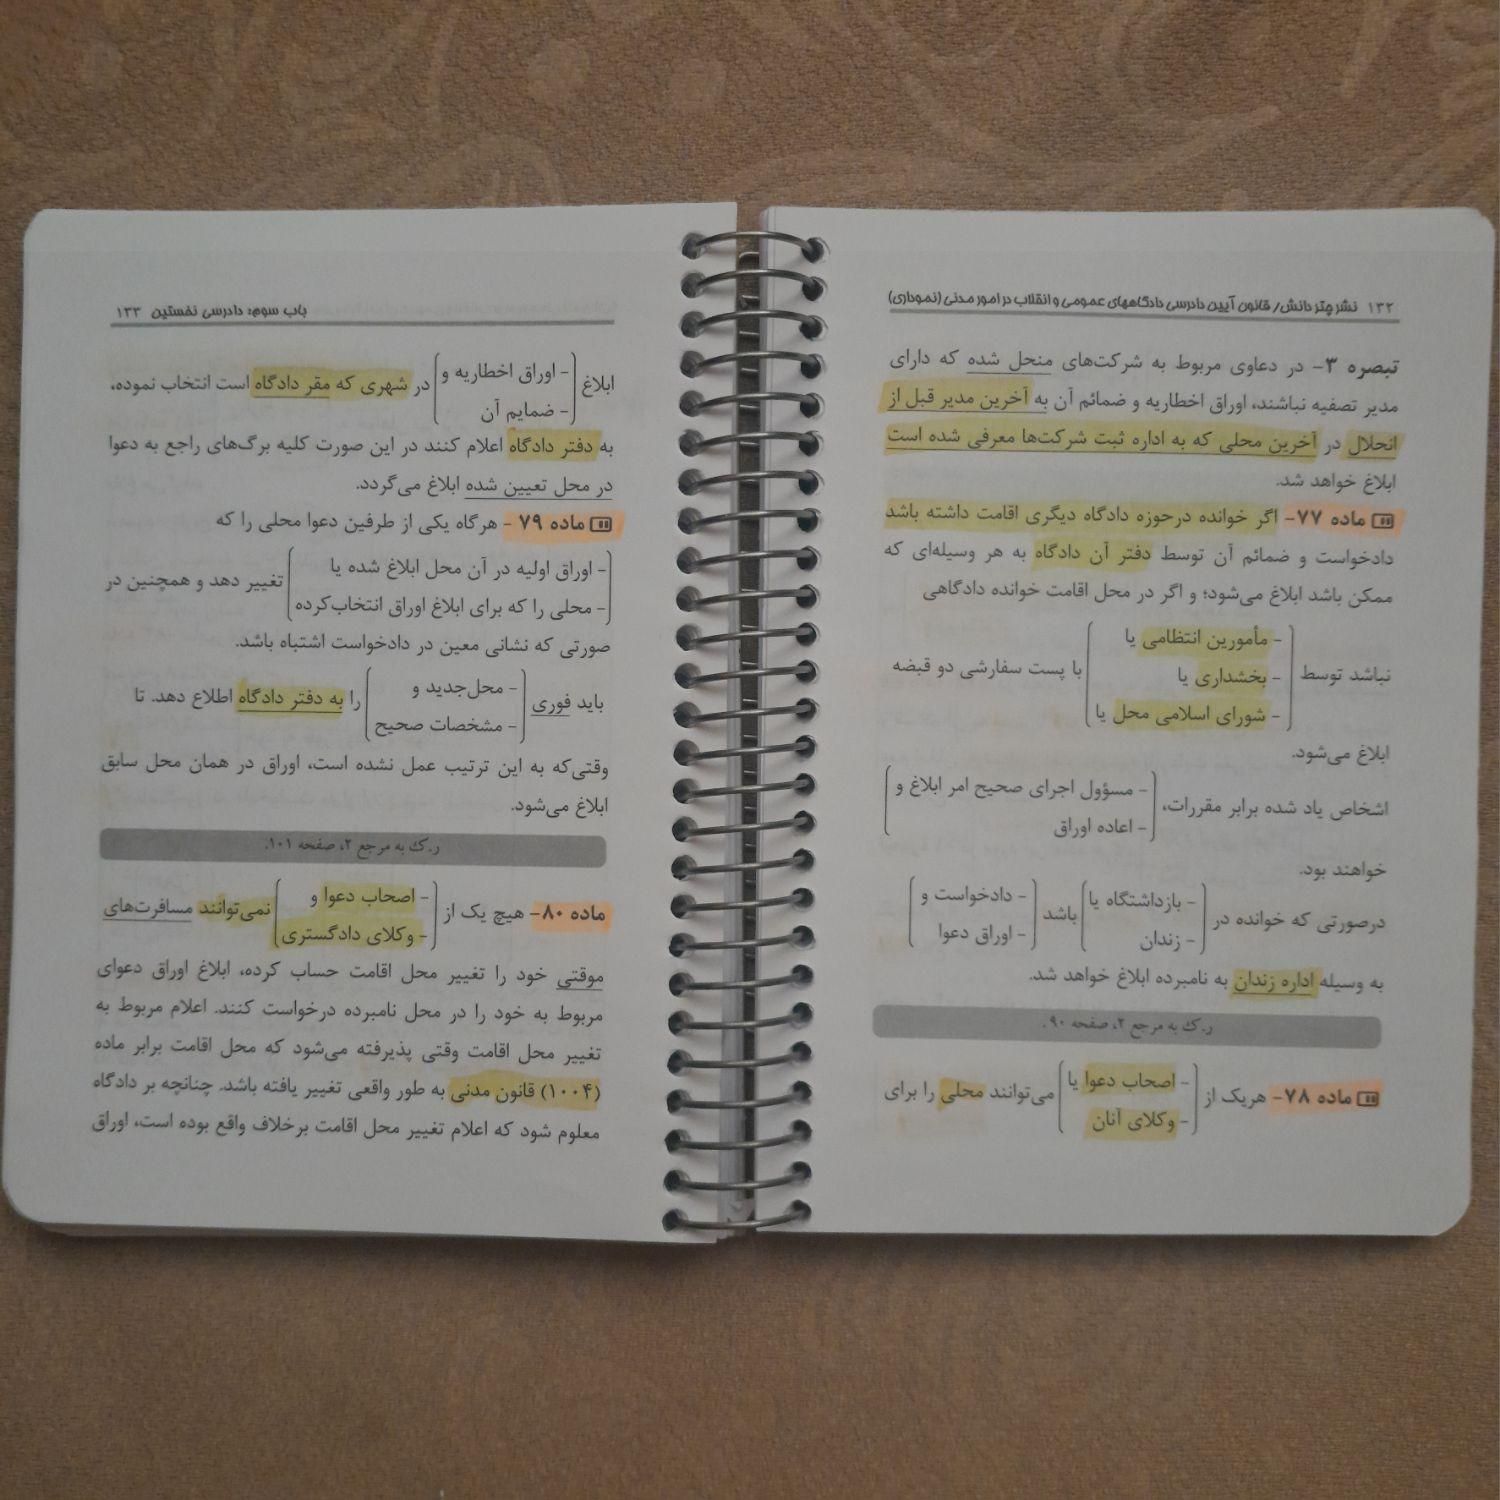 ۱۳۲ نشر چتر دانش/ قانون آیین دادرسی دادگاههای عمومی و انقلاب در امور مدنی (نموداری)
تبصره ۳- در دعاوی مربوط به شرکت‌های منحل شده که دارای
مدیر تصفیه نباشند، اوراق اخطاریه و ضمائم آن به آخرین مدیر قبل از
انحلال در آخرین محلی که به اداره ثبت شرکت‌ها معرفی شده است
ابلاغ خواهد شد.
ماده ۷۷- اگر خوانده درحوزه دادگاه دیگری اقامت داشته باشد
دادخواست و ضمائم آن توسط دفتر آن دادگاه به هر وسیله‌ای که
ممکن باشد ابلاغ می‌شود؛ و اگر در محل اقامت خوانده دادگاهی
- مأمورین انتظامی یا
نباشد توسط - بخشداری یا با پست سفارشی دو قبضه
- شورای اسلامی محل یا
ابلاغ می‌شود.
- مسؤول اجرای صحیح امر ابلاغ و
اشخاص یاد شده برابر مقررات،
- اعاده اوراق
خواهند بود.
- بازداشتگاه یا - دادخواست و
درصورتی که خوانده در باشد
- زندان - اوراق دعوا
به وسیله اداره زندان به نامبرده ابلاغ خواهد شد.
ر.ک به مرجع ۲، صفحه ۹۰.
- اصحاب دعوا یا
ماده ۷۸- هریک از می‌توانند محلی را برای
- وکلای آنان
باب سوم: دادرسی نخستین ۱۳۳
- اوراق اخطاریه و
ابلاغ در شهری که مقر دادگاه است انتخاب نموده،
- ضمایم آن
به دفتر دادگاه اعلام کنند در این صورت کلیه برگ‌های راجع به دعوا
در محل تعیین شده ابلاغ می‌گردد.
ماده ۷۹- هرگاه یکی از طرفین دعوا محلی را که
- اوراق اولیه در آن محل ابلاغ شده یا
تغییر دهد و همچنین در
- محلی را که برای ابلاغ اوراق انتخاب‌کرده
صورتی که نشانی معین در دادخواست اشتباه باشد.
- محل‌جدید و
باید فوری را به دفتر دادگاه اطلاع دهد. تا
- مشخصات صحیح
وقتی‌که به این ترتیب عمل نشده است، اوراق در همان محل سابق
ابلاغ می‌شود.
ر.ک به مرجع ۲، صفحه ۱۰۱.
- اصحاب دعوا و
ماده ۸۰- هیچ یک از نمی‌توانند مسافرت‌های
- وکلای دادگستری
موقتی خود را تغییر محل اقامت حساب کرده، ابلاغ اوراق دعوای
مربوط به خود را در محل نامبرده درخواست کنند. اعلام مربوط به
تغییر محل اقامت وقتی پذیرفته می‌شود که محل اقامت برابر ماده
(۱۰۰۴) قانون مدنی به طور واقعی تغییر یافته باشد. چنانچه بر دادگاه
معلوم شود که اعلام تغییر محل اقامت برخلاف واقع بوده است، اوراق